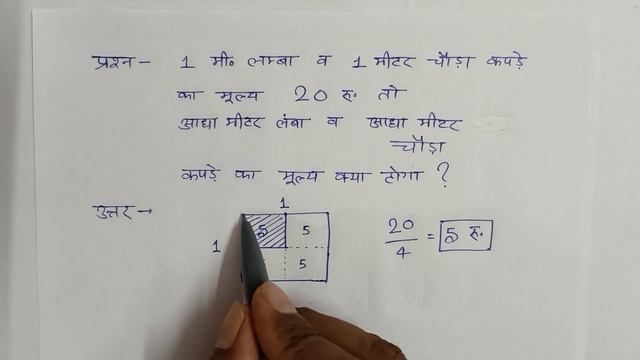 प्रश्न - 1 मी० लम्बा व 1 मीटर चौड़ा कपड़े
का मूल्य 20 रु. तो
आधा मीटर लंबा व आधा मीटर
चौड़ा
कपड़े का मूल्य क्या होगा ?
उत्तर → 1
5 5
1 20/4 = 5 रु.
5